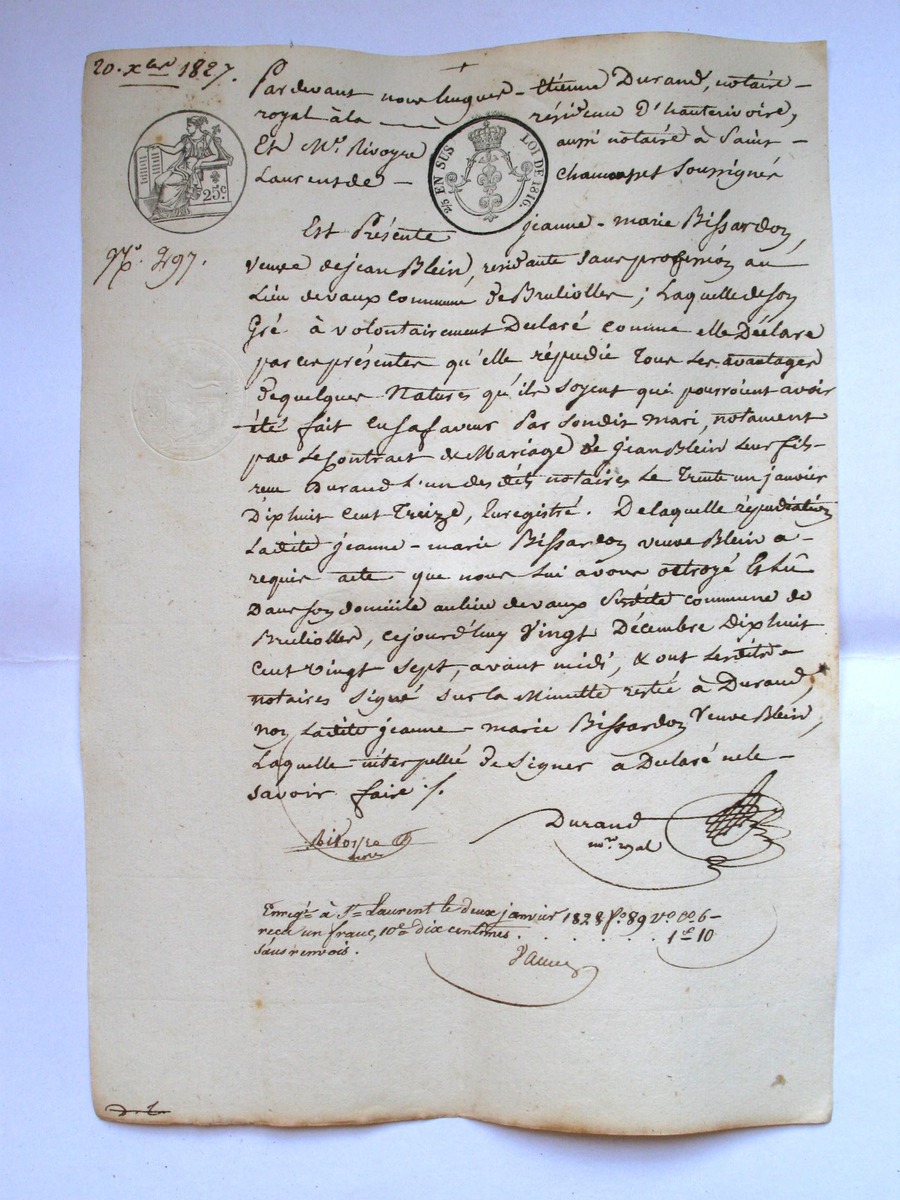 20. xbre 1827.
Pardevant nous hugues-étienne Durand, notaire
royal à la résidence D'hauterivoire,
Et Me. Rivoyre aussi notaire à Saint-
Laurent de - Chamousset Soussignés
25c.
2/5 EN SUS
LOI DE 1816.
No. 297.
Est Présente jeanne-marie Bissardon,
veuve de jean Blein, residante sans profession au
Lieu de vaux commune de Brullioles; Laquelle de son
Gré à volontairement Declaré comme elle Déclare
par ces présentes qu'elle répudie Tous les avantages
de quelques Natures qu'ils soyent qui pourroient avoir
été fait en sa faveur Par son dit mari, notament
par Le Contract de Mariage de jean Blein leur fils-
reçu Durand L'un des dits notaires Le Trente un janvier
Dix huit Cent Treize, Enregistré. De laquelle répudiation
Ladite jeanne-marie Bissardon veuve Blein a-
requis acte que nous lui avons octroyé Et Lû
Dans son domicile au lieu de vaux susdite commune de
Brullioles, cejourd'huy Vingt Décembre Dix huit
Cent vingt sept, avant midi, & ont lesdits
notaires Signé sur la Minutte restée à Durand,
non Ladite jeanne-marie Bissardon Veuve Blein,
Laquelle interpellée de Signer a Declaré ne le-
savoir faire /.
Rivoyre
Durand
nore. royal
Enregé. à St. Laurent le deux janvier 1828 fo. 89 Vo. Co. 6-
reçu un franc, 10e. dix centimes . . . . . . 1f 10
sans renvois.